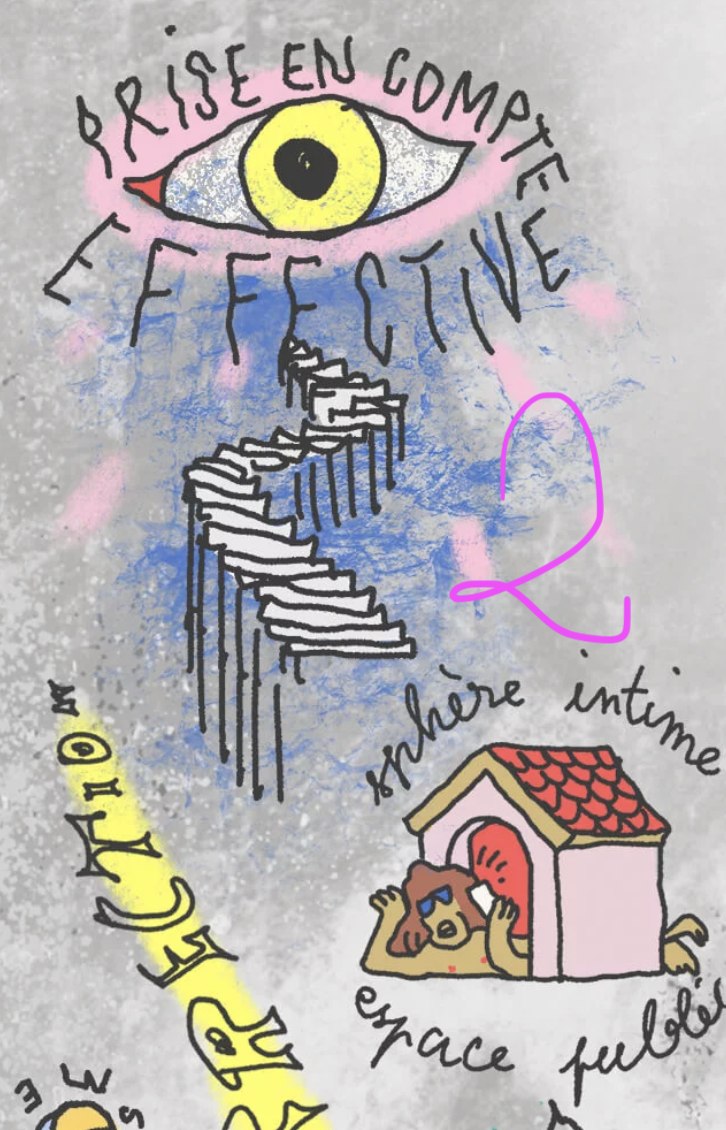 PRISE EN COMPTE
EFFECTIVE
2
sphère intime
espace public